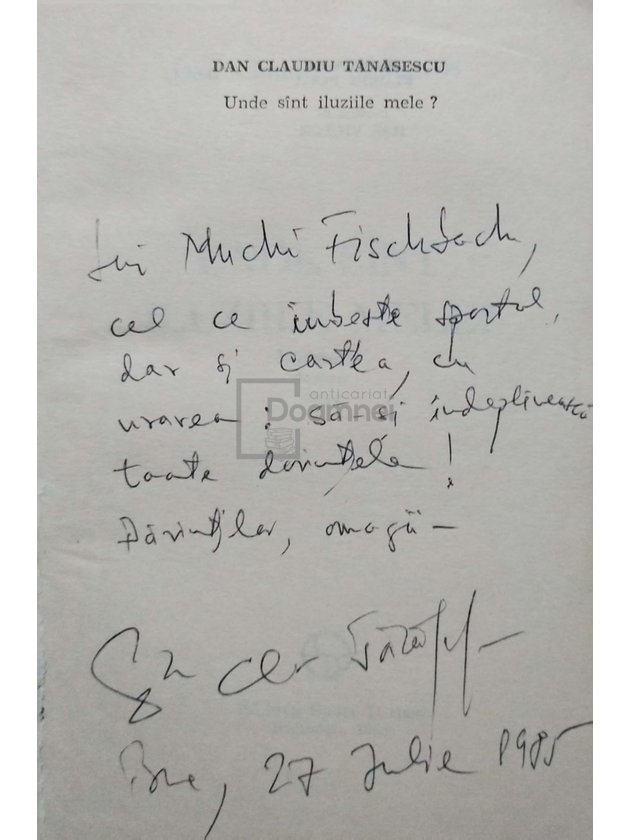 DAN CLAUDIU TANASESCU
Unde sînt iluziile mele ?
Lui Muchi Fischbach,
cel ce iubește sportul,
dar și cartea, cu
urarea : să-și îndeplinească
toate dorințele !
Părinților, omagii —
Dan Cl Tănăsescu
Buc, 27 Iulie 1985
anticariat
Doamnei